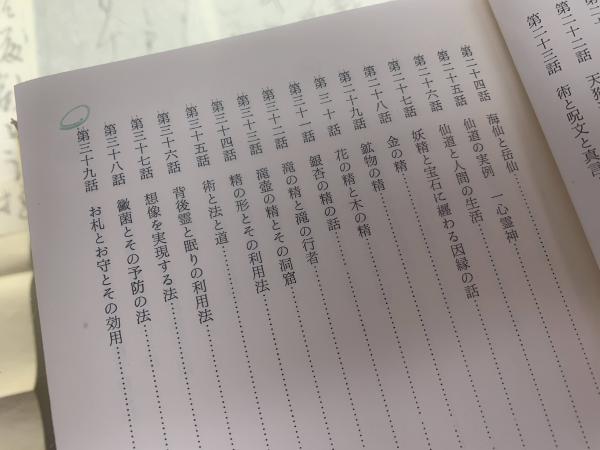 第二十二話　天狗
第二十三話　術と呪文と真言
第二十四話　海仙と岳仙
第二十五話　仙道の実例　一心霊神
第二十六話　仙道と人間の生活
第二十七話　妖精と宝石に纏わる因縁の話
第二十八話　金の精
第二十九話　鉱物の精
第三十話　花の精と木の精
第三十一話　銀杏の精の話
第三十二話　竜の精と竜の行者
第三十三話　竜壺の精とその洞窟
第三十四話　精の形とその利用法
第三十五話　術と法と道
第三十六話　背後霊と眠りの利用法
第三十七話　想像を実現する法
第三十八話　黴菌とその予防の法
第三十九話　お札とお守とその効用